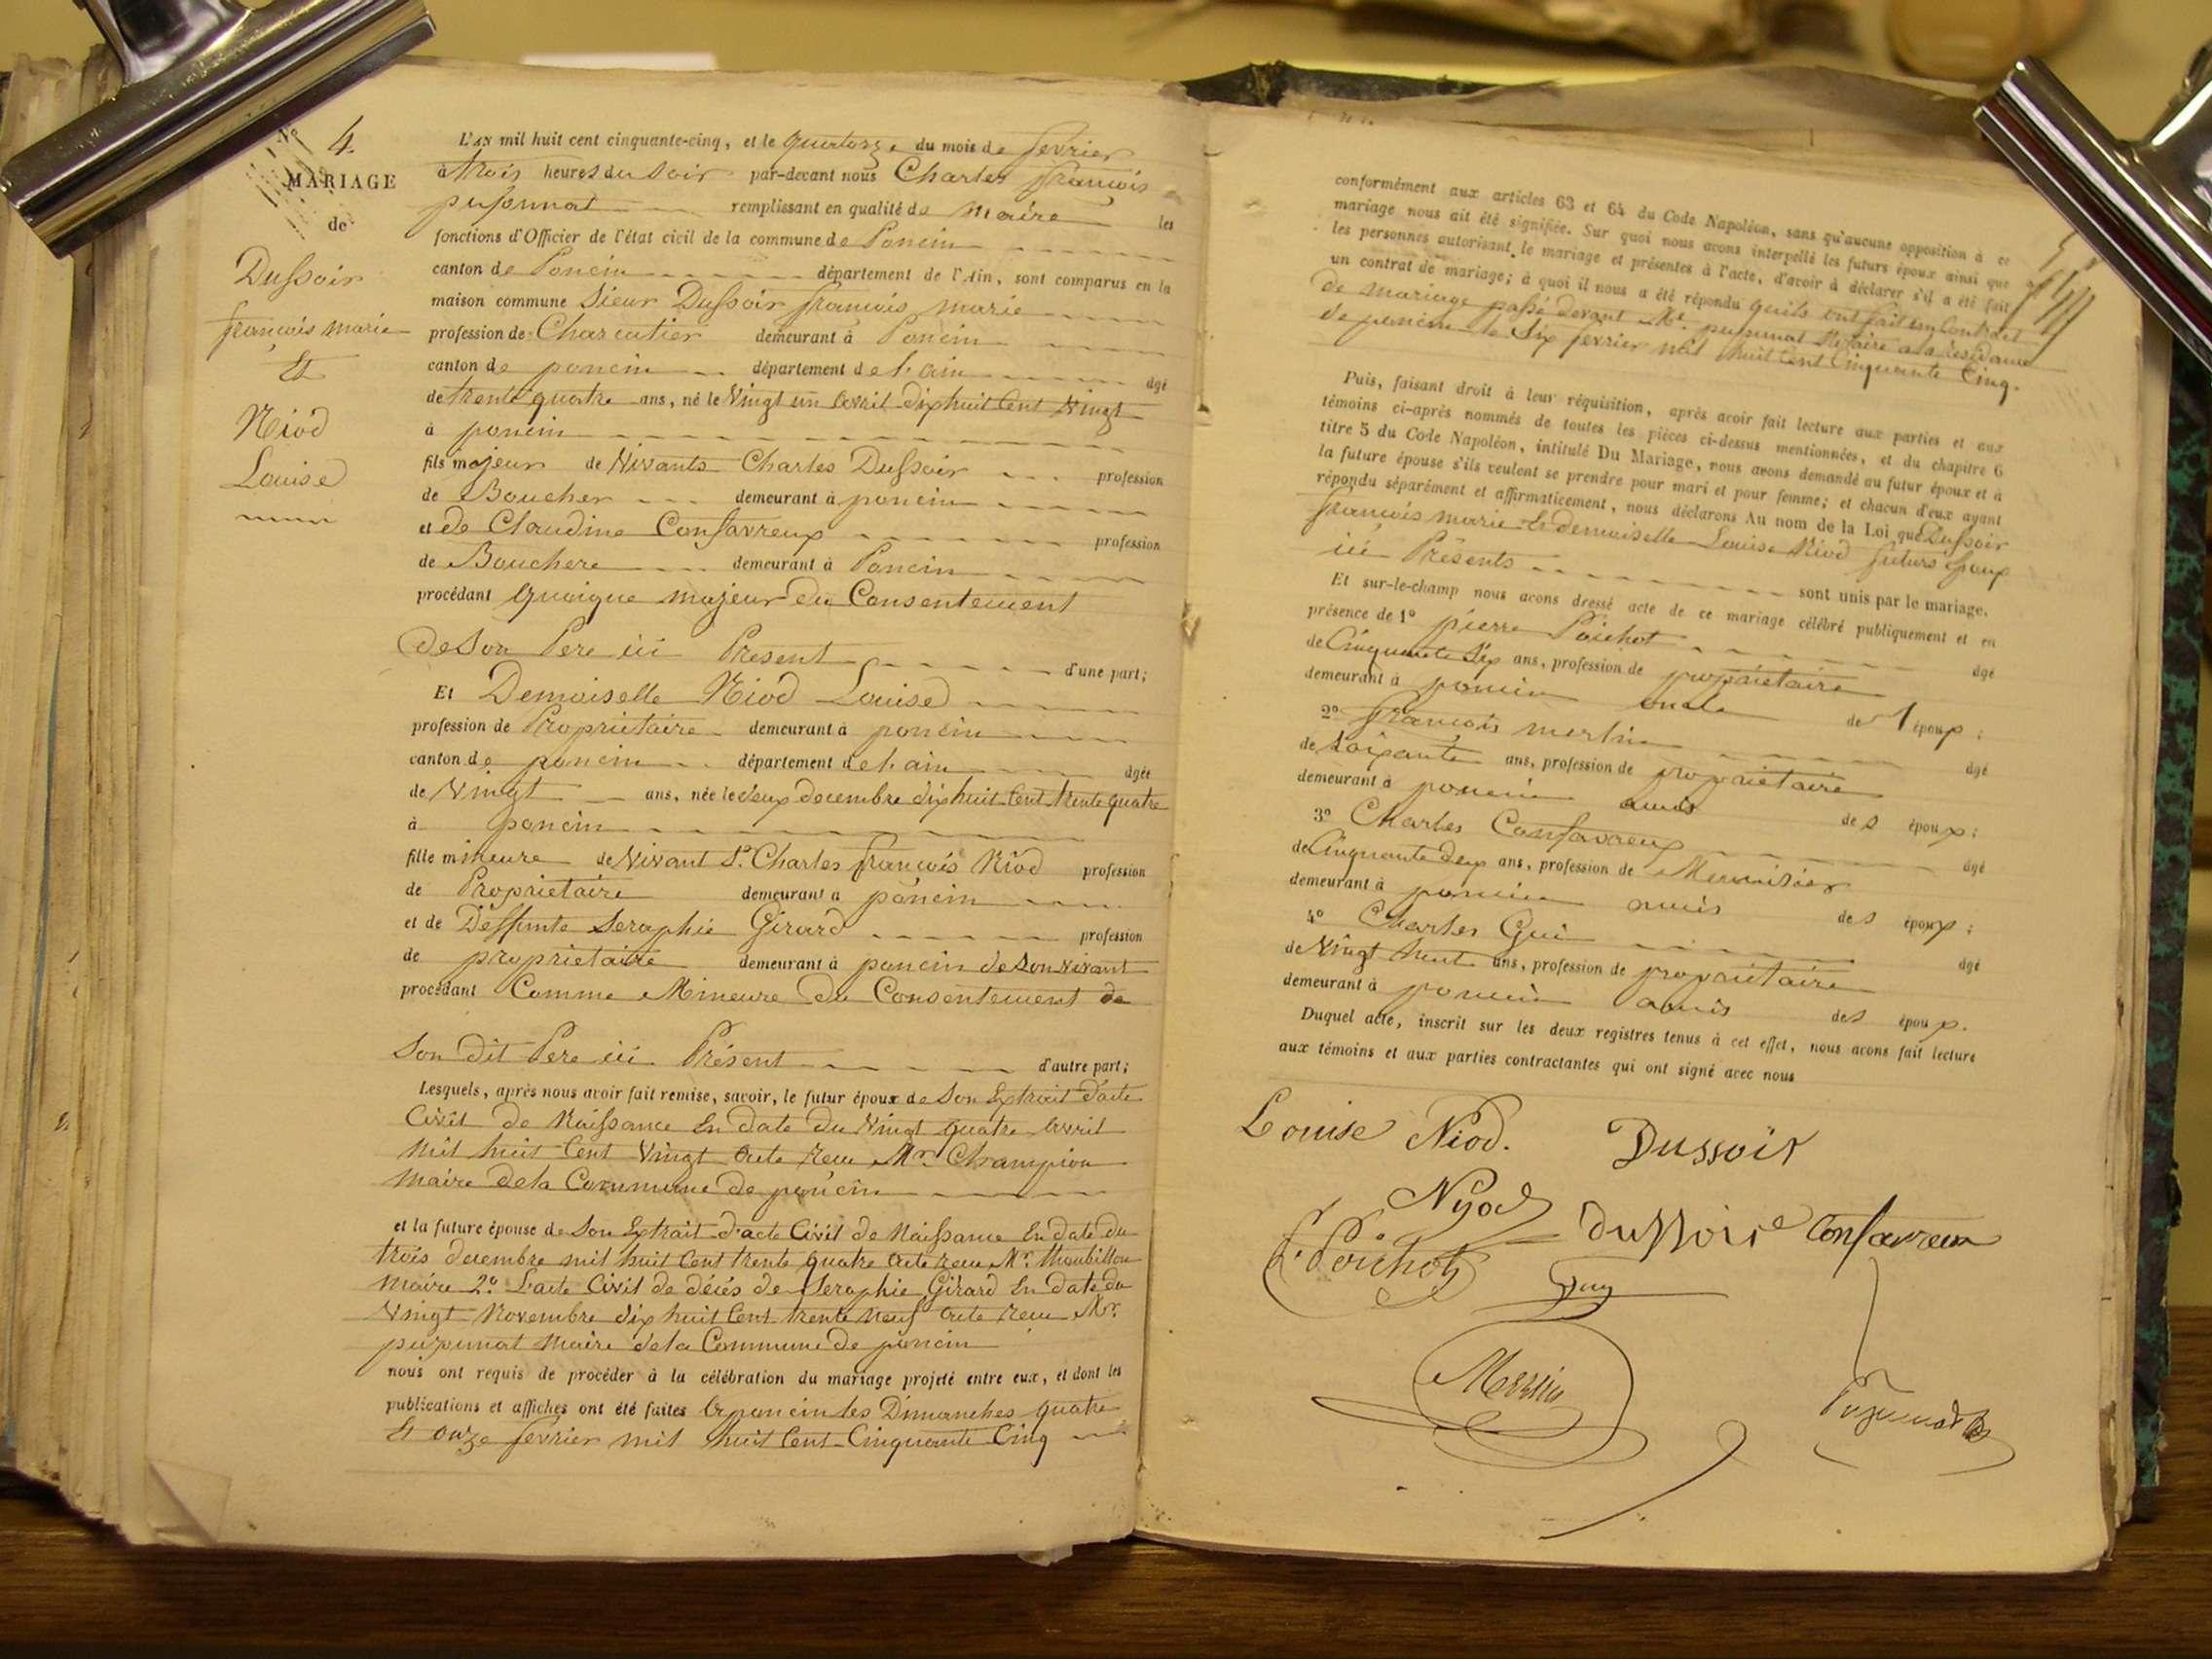 Nº 4.
MARIAGE
de
Dussoir
françois marie
Et
Niod
Louise
L'AN mil huit cent cinquante-cinq, et le quatorze du mois de fevrier
à trois heures du Soir par-devant nous Charles françois
pujonnat remplissant en qualité de maire les
fonctions d'Officier de l'état civil de la commune de Poncin
canton de Poncin département de l'Ain, sont comparus en la
maison commune Sieur Dussoir françois marie
profession de Charcutier demeurant à Poncin
canton de poncin département de l'ain âgé
de trente quatre ans, né le Vingt un avril dix huit Cent Vingt
à poncin
fils majeur de Vivants Charles Dussoir profession
de Boucher demeurant à poncin
et de Claudine Confavreux profession
de Bouchere demeurant à Poncin
procédant quoique majeur du Consentement
de Son Pere ici Present d'une part;
Et Demoiselle Niod Louise
profession de Propriétaire demeurant à poncin
canton de poncin département de l'ain âgée
de Vingt ans, née le deux decembre dix huit Cent trente quatre
à poncin
fille mineure de Vivant Sr. Charles françois Niod profession
de Propriétaire demeurant à poncin
et de Deffunte Seraphie Girard profession
de propriétaire demeurant à poncin de Son vivant
procédant Comme Mineure du Consentement de
Son dit Pere ici Présent d'autre part;
Lesquels, après nous avoir fait remise, savoir, le futur époux de Son Extrait d'acte
Civil de Naissance En date du Vingt quatre avril
mil huit Cent Vingt acte reçu Mr. Champion
maire dela Commune de poncin
et la future épouse de Son Extrait d'acte Civil de Naissance En date du
trois decembre mil huit Cent trente quatre acte reçu Mr.
maire 2º L'acte Civil de décés de Seraphie Girard En date du
Vingt Novembre dix huit Cent trente neuf acte reçu Mr.
pujonnat maire dela Commune de poncin
nous ont requis de procéder à la célébration du mariage projeté entre eux, et dont les
publications et affiches ont été faites a poncin les Dimanches quatre
Et onze fevrier mil huit Cent Cinquante Cinq
conformément aux articles 63 et 64 du Code Napoléon, sans qu'aucune opposition à ce
mariage nous ait été signifiée. Sur quoi nous avons interpellé les futurs époux ainsi que
les personnes autorisant le mariage et présentes à l'acte, d'avoir à déclarer s'il a été fait
un contrat de mariage; à quoi il nous a été répondu quils ont fait un Contract
de mariage passé devant Me. pujonnat Notaire a la résidance
de poncin le Six fevrier mil huit Cent Cinquante Cinq.
Puis, faisant droit à leur réquisition, après avoir fait lecture aux parties et aux
témoins ci-après nommés de toutes les pièces ci-dessus mentionnées, et du chapitre 6
titre 5 du Code Napoléon, intitulé Du Mariage, nous avons demandé au futur époux et à
la future épouse s'ils veulent se prendre pour mari et pour femme; et chacun d'eux ayant
répondu séparément et affirmativement, nous déclarons Au nom de la Loi que Dussoir
françois marie Et demoiselle Louise Niod futurs Epoux
ici Présents sont unis par le mariage.
Et sur-le-champ nous avons dressé acte de ce mariage célébré publiquement et en
présence de 1º pierre Poichot âgé
de Cinquante Six ans, profession de propriétaire
demeurant à poncin oncle de l'époux;
2º françois merlin âgé
de Soixante ans, profession de propriétaire
demeurant à poncin amis des époux;
3º Charles Confavreux âgé
de Cinquante deux ans, profession de Menuisier
demeurant à poncin amis des époux;
4º Charles Gui âgé
de Vingt huit ans, profession de propriétaire
demeurant à poncin amis des époux.
Duquel acte, inscrit sur les deux registres tenus à cet effet, nous avons fait lecture
aux témoins et aux parties contractantes qui ont signé avec nous
Louise Niod. Dussoir
Nyod dussoire Confavreux
Poichot Guy
Merlin Pujonnat